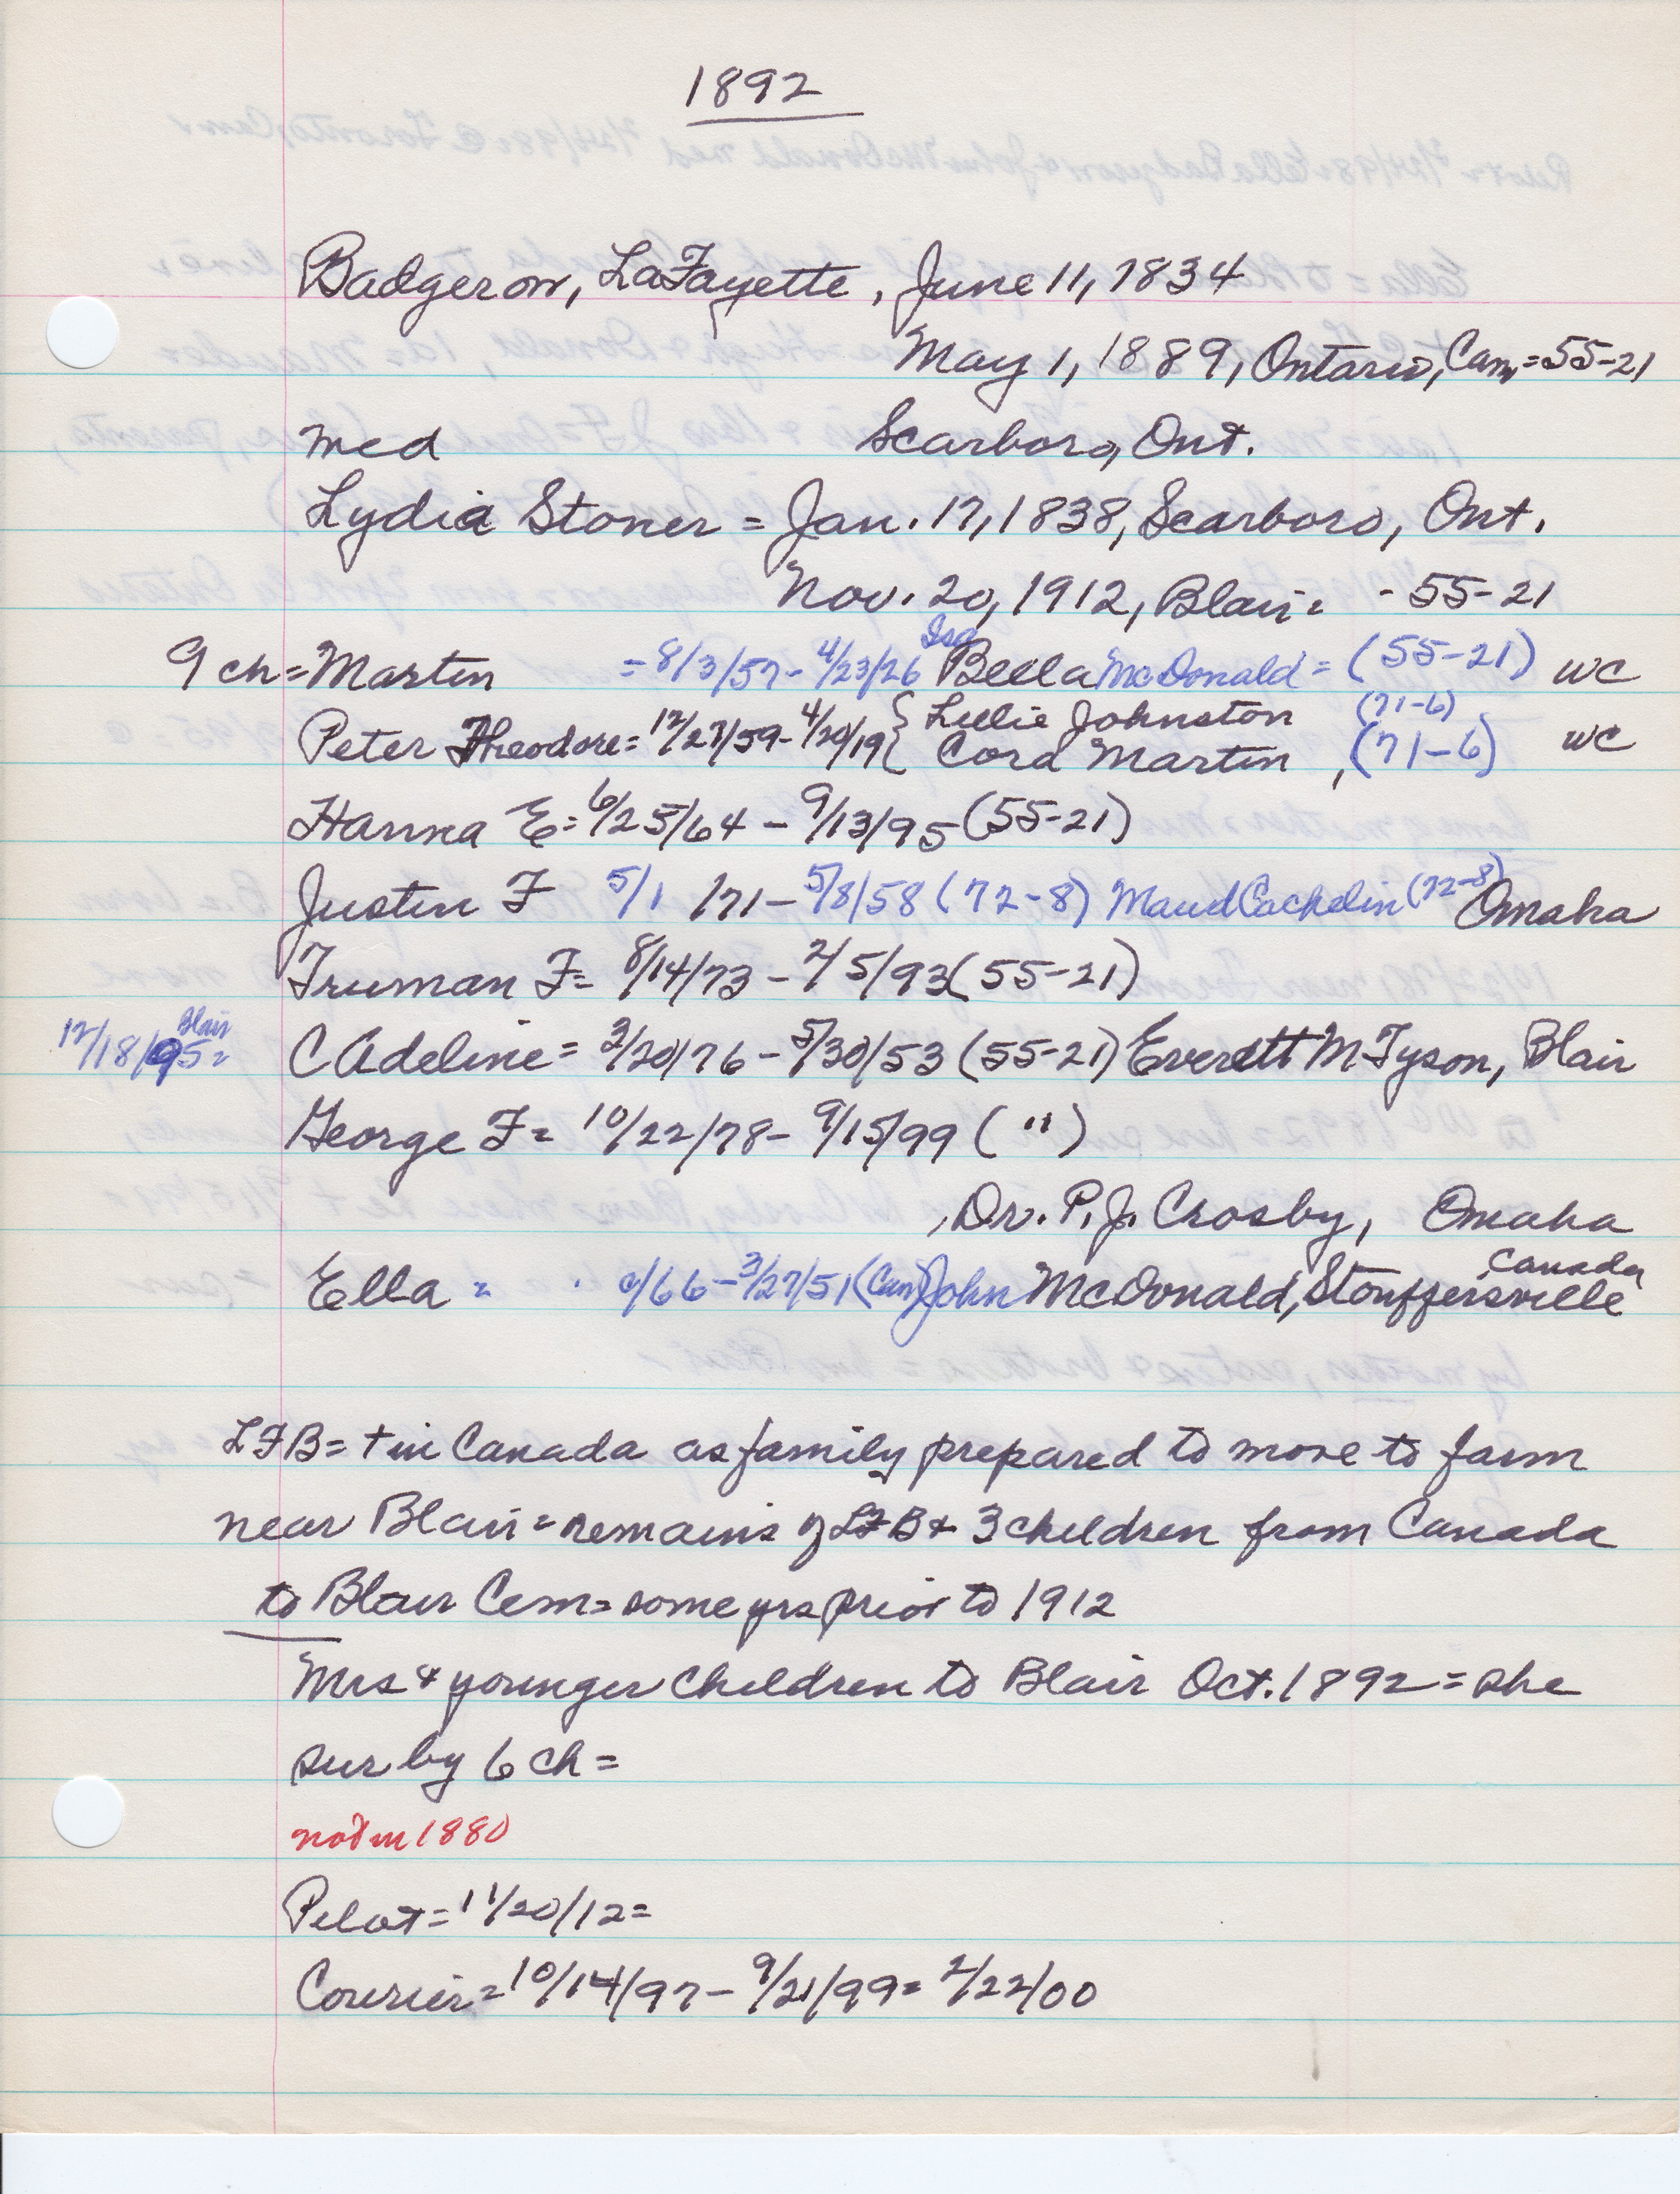 1892
Badgerow, LaFayette, June 11, 1834
May 1, 1889, Ontario, Can = 55-21
med Scarboro, Ont.
Lydia Stoner = Jan. 17, 1838, Scarboro, Ont.
Nov. 20, 1912, Blair = - 55-21
9 ch = Martin = 8/3/57 - 4/23/26 Isa Bella McDonald = (55-21) WC
Peter Theodore = 12/27/59 - 4/20/19 { Lulie Johnston (71-6)
Cora Martin, (71-6) WC
Hanna E = 6/25/64 - 9/13/95 (55-21)
Justin F 5/1/71 - 5/8/58 (72-8) Maud Cachelin (72-8) Omaha
Truman F = 8/14/73 - 2/5/93 (55-21)
12/18/95 = Blair C Adeline = 3/20/76 - 5/30/53 (55-21) Everett M Tyson, Blair
George F = 10/22/78 - 9/15/99 ( " )
, Dr. P. J. Crosby, Omaha
Ella = /66 - 3/27/51 (Can) John McDonald, Stouffersville Canada
LFB = + in Canada as family prepared to move to farm
near Blair = remains of LFB + 3 children from Canada
to Blair Cem = some yrs prior to 1912
Mrs + younger children to Blair Oct. 1892 = she
sur by 6 ch =
not in 1880
Pilot = 11/20/12 =
Courier = 10/14/97 - 9/21/99 = 2/22/00